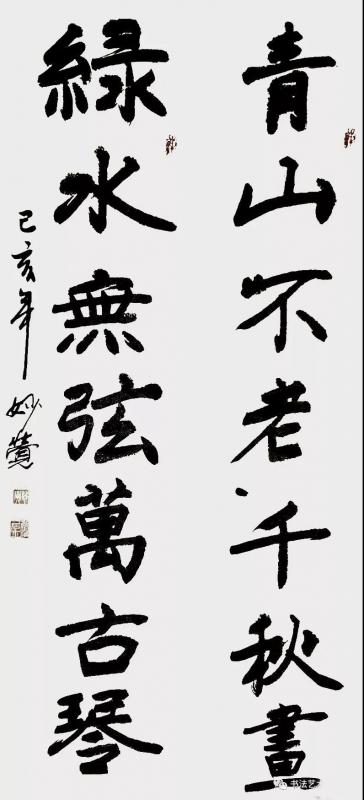 青山不老千秋畫
綠水無弦萬古琴
己亥年 妙鶯
书法艺